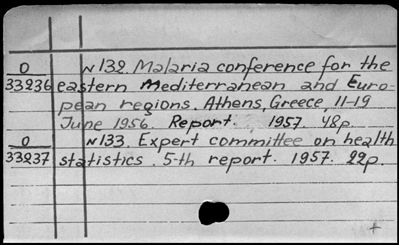 O N132. Malaria conference for the
33236 eastern Mediterranean and Euro-
pean regions. Athens, Greece, 11-19
June 1956. Report. 1957 48p
O N133. Expert committee on health
33237 statistics. 5-th report. 1957. 22p.
+